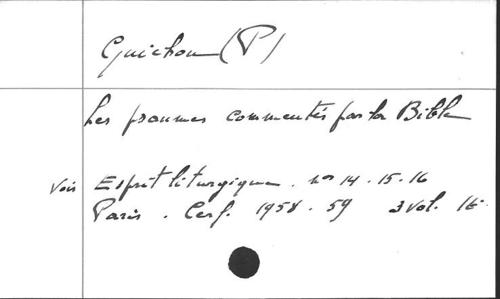 Guichou (P)
Les psaumes commentés par la Bible
Voir Esprit liturgique. nos 14. 15. 16
Paris. Cerf. 1958. 59 3 vol.